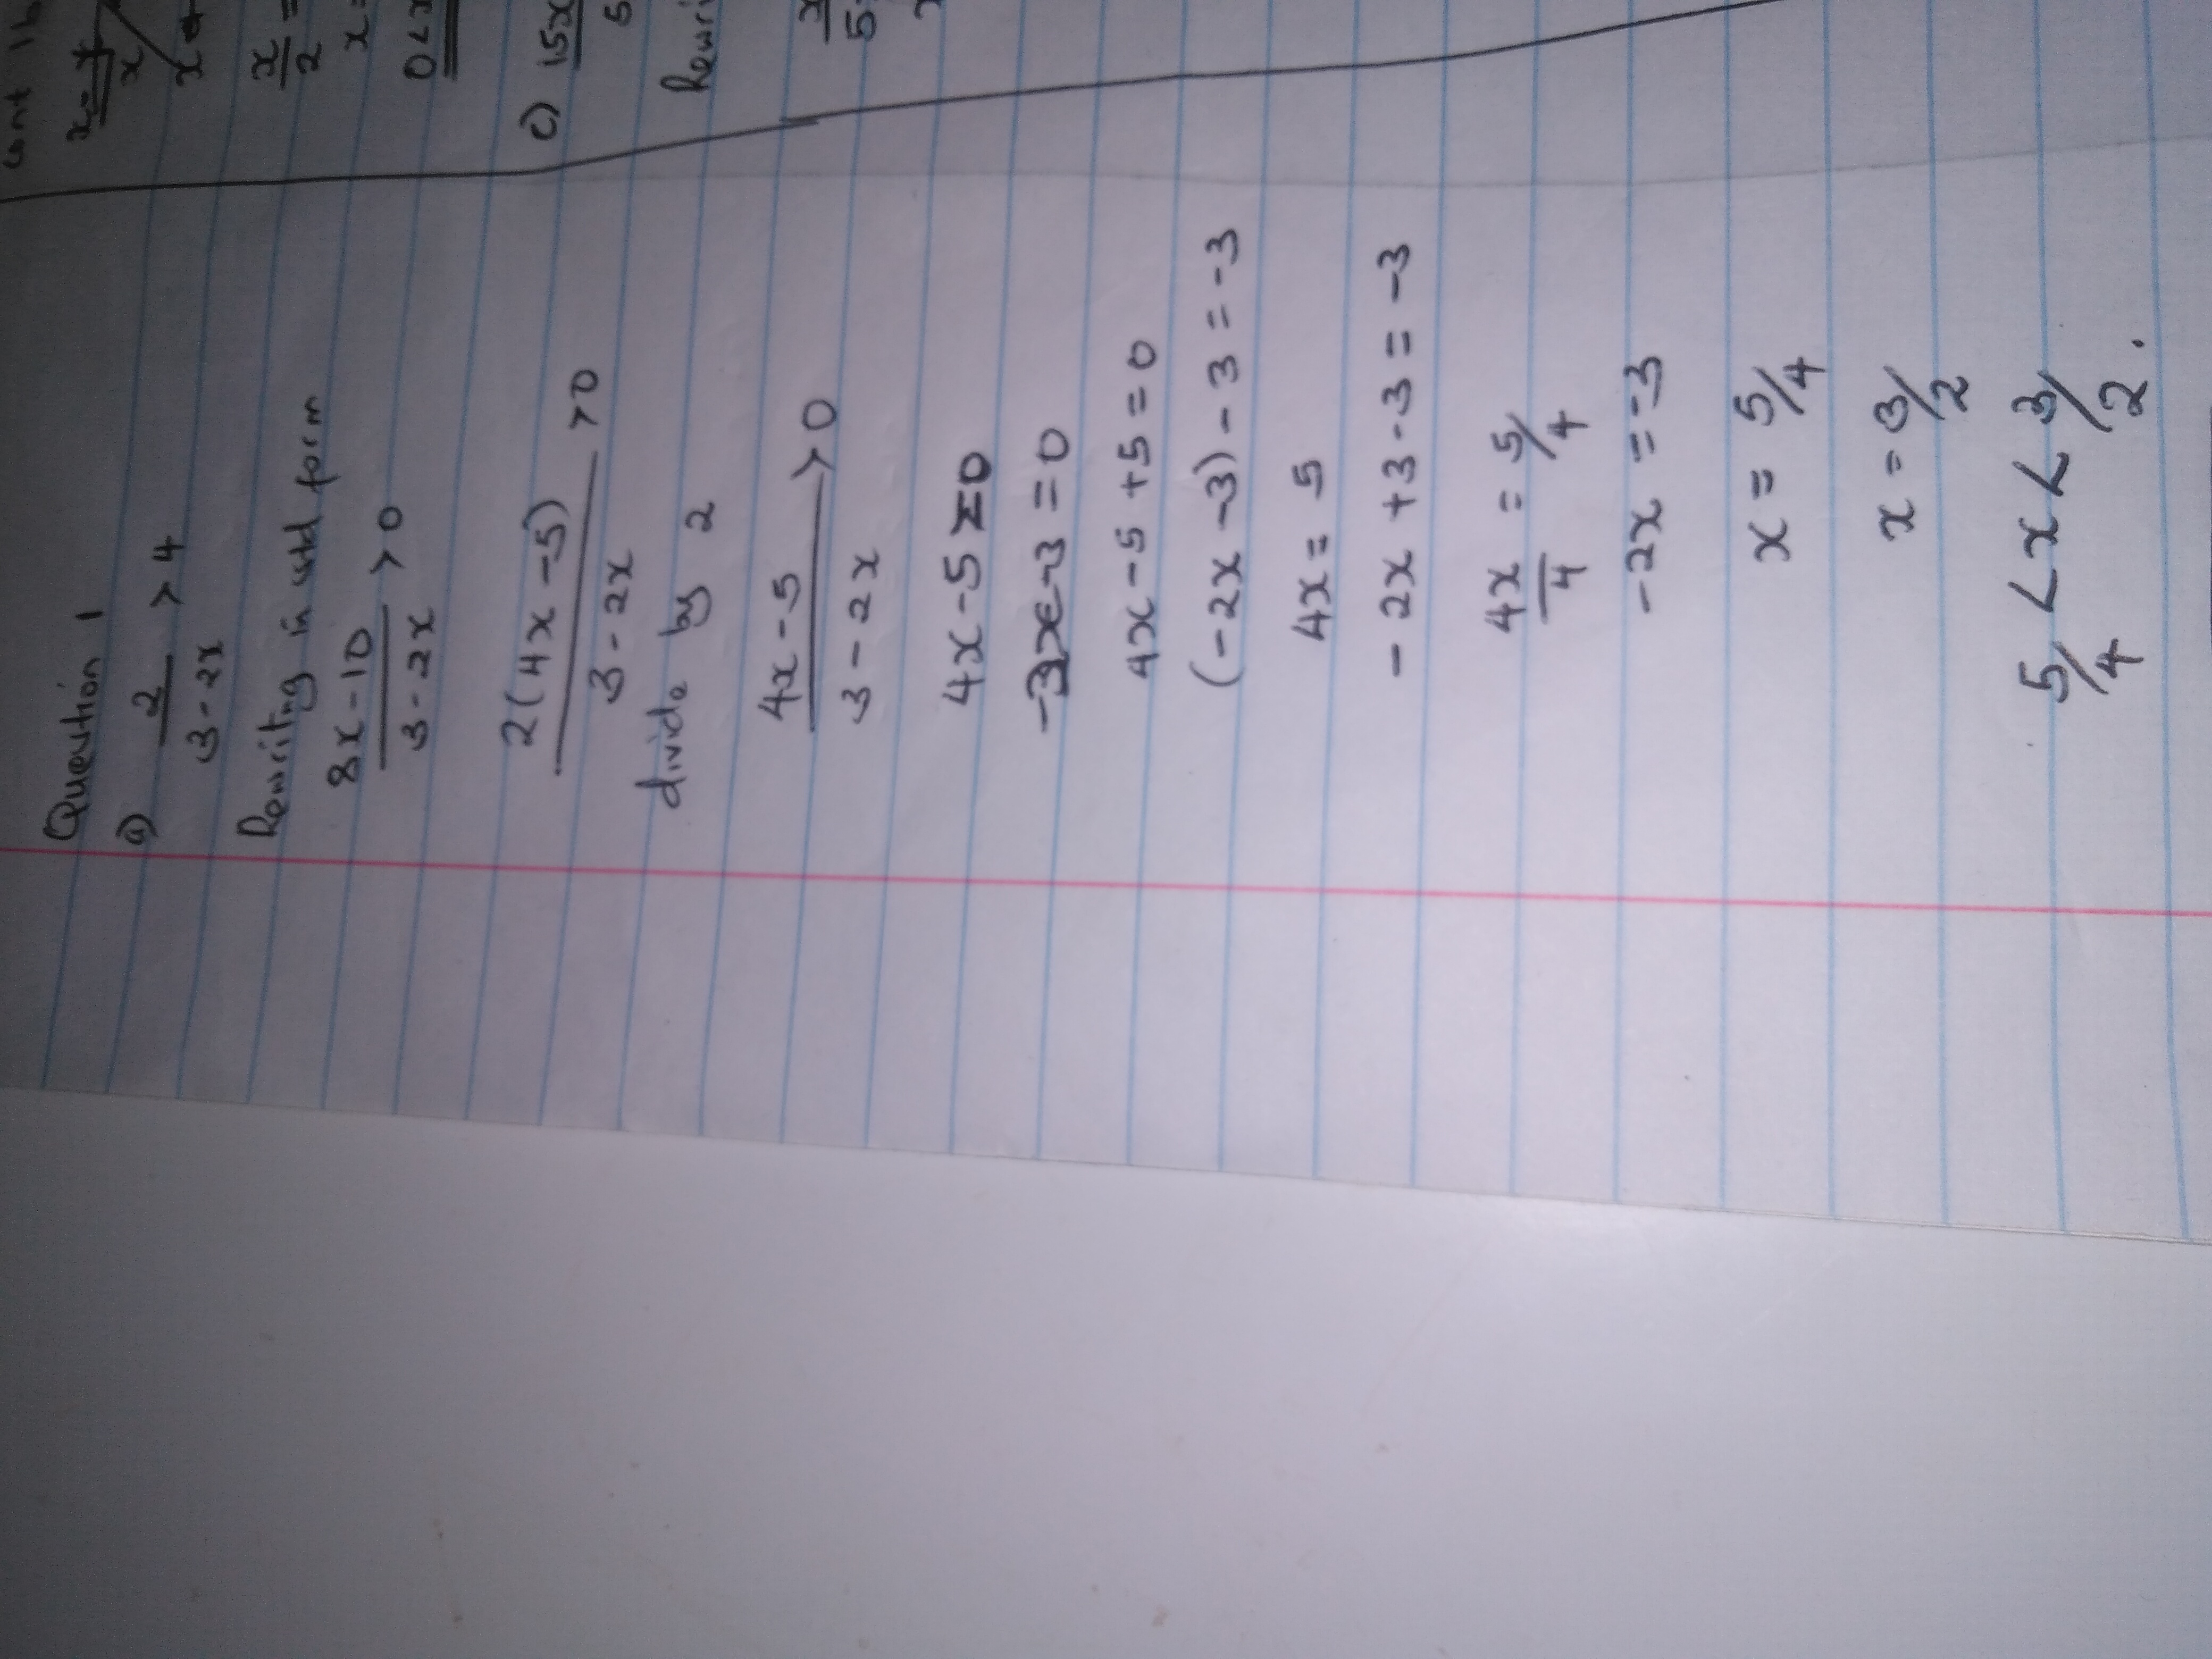 Question 1
a) 2/3-2x > 4
Rewriting in std form
8x-10/3-2x > 0
2(4x-5)/3-2x > 0
divide by 2
4x-5/3-2x > 0
4x-5=0
-2x-3=0
4x-5+5=0
(-2x-3)-3=-3
4x=5
-2x+3-3=-3
4x/4=5/4
-2x=-3
x=5/4
x=3/2
5/4<x<3/2.
cont 1b
x
x
x/2 =
x=
0<x
c) 15x
5
Rewri
x
5